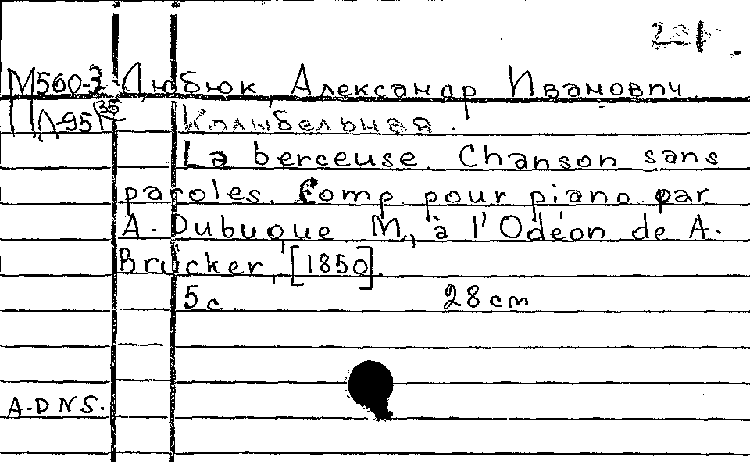 М560-3 Дюбюк, Александр Иванович.
Колыбельная.
La berceuse. Chanson sans
paroles. Comp. pour piano par
A. Dubuque M., à l'Odéon de A.
Brücker, [1850].
5 с. 28 cm
A.D N S.